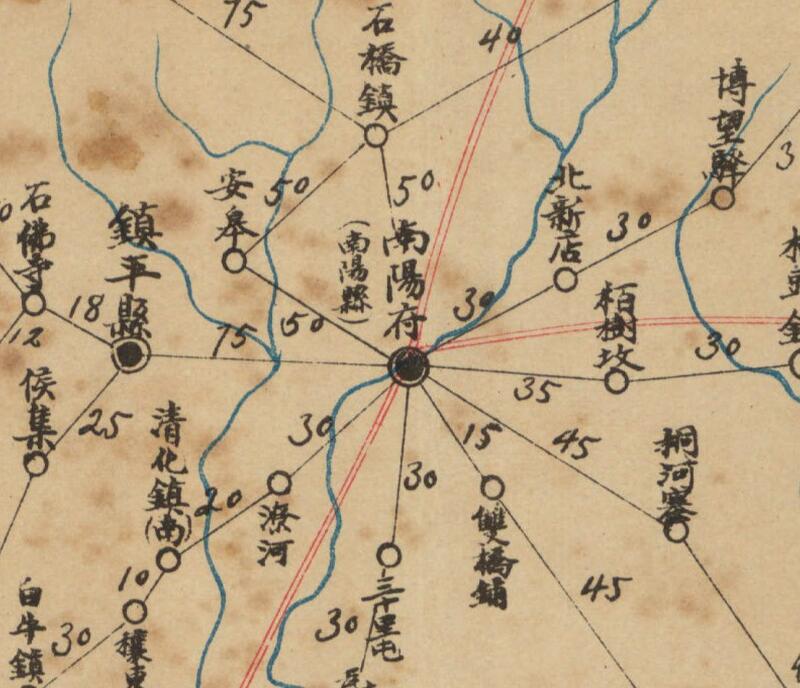 75
石橋鎮
40
博望驛
安皋
50
50
北新店
30
石佛寺
鎮平縣
南陽府
(南陽縣)
18
12
75
50
30
栢樹坟
30
35
侯集
25
清化鎮(南)
20
30
潦河
30
15
45
桐河寨
雙橋鋪
45
10
三十里屯
30
白牛鎮
30
穰東